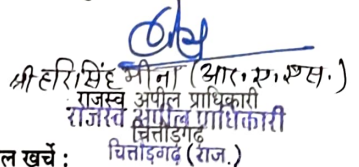 श्री हरिसिंह मीना (आर. ए. एस.)
राजस्व अपील प्राधिकारी
राजस्व अपील प्राधिकारी
चित्तौड़गढ़
चित्तौड़गढ़ (राज.)
ल खर्चे :